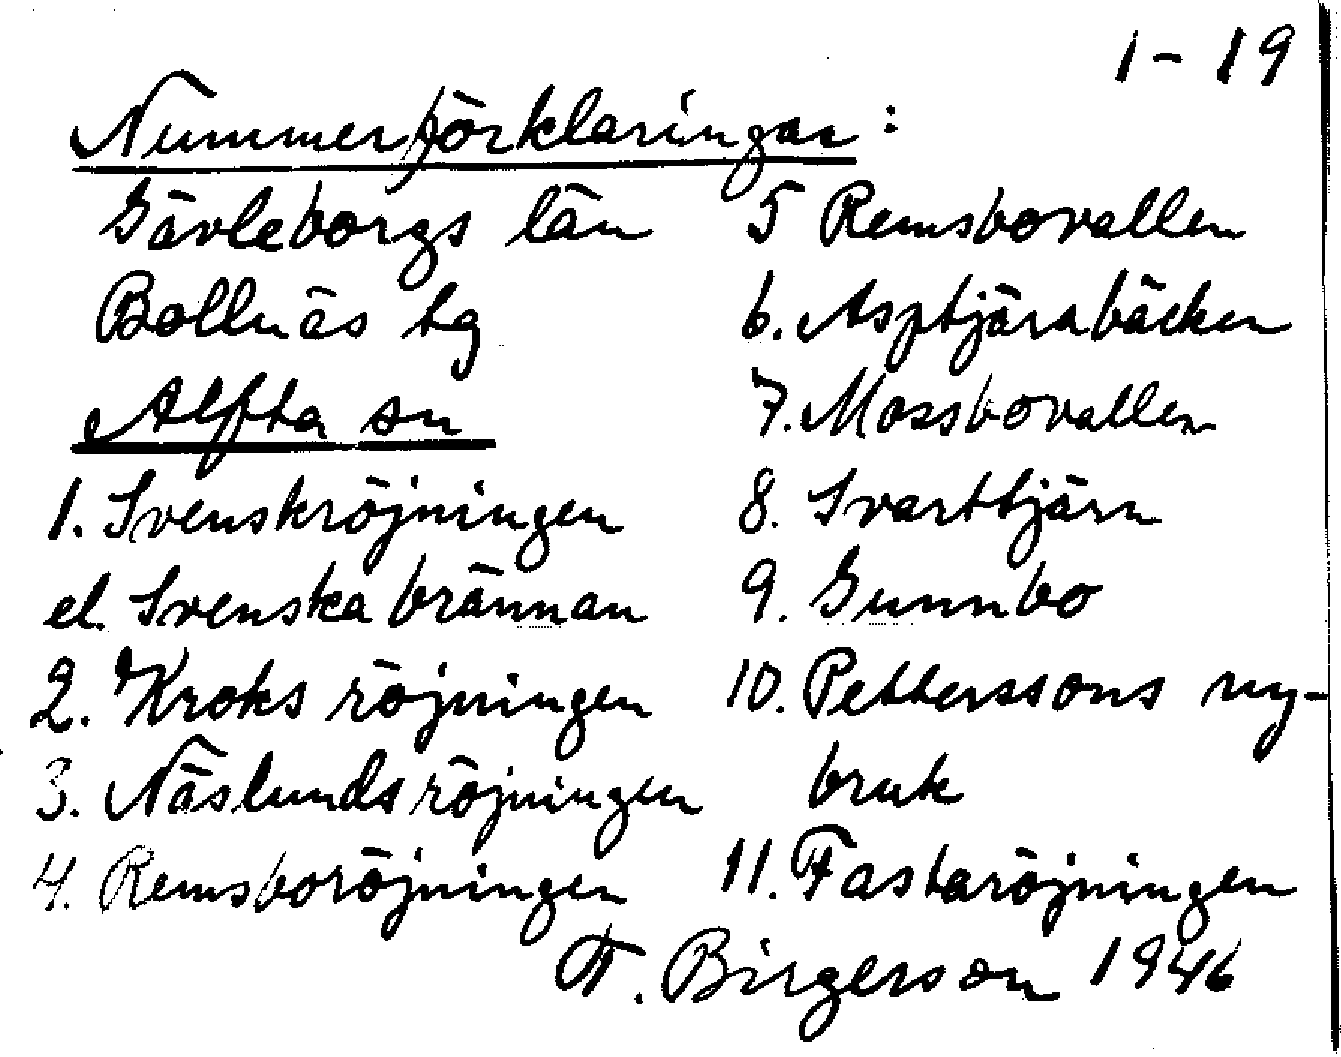 1-19
Nummerförklaringar:
Gävleborgs län
Bollnäs tg
Alfta sn
1. Svenskröjningen
el. Svenska brännan
2. Kroks röjningen
3. Näslundsröjningen
4. Remsboröjningen
5 Remsbovallen
6. Asptjärnbäcken
7. Mossbovallen
8. Svarttjärn
9. Gunnbo
10. Petterssons ny-
bruk
11. Fastaröjningen
F. Birgerson 1946